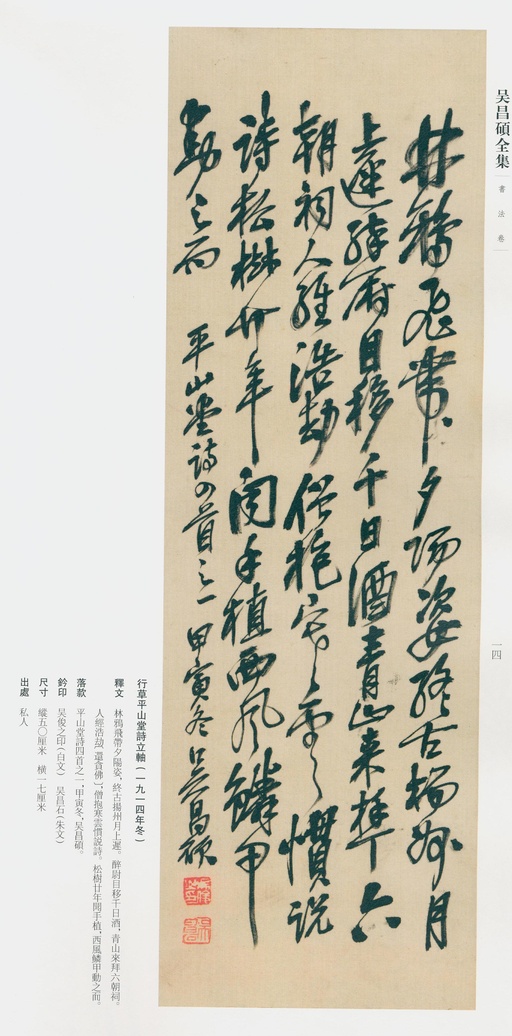 吴昌碩全集
書法卷
一四
林鴉飛帶夕陽姿終古揚州月
上遲醉尉目移千日酒青山來拜六
朝祠人經浩劫僧抱寒雲慣説
詩松樹廿年閲手植西風鱗甲
動之而
平山堂詩四首之一甲寅冬吳昌碩
行草平山堂詩立軸(一九一四年冬)
釋文 林鴉飛帶夕陽姿,終古揚州月上遲。醉尉目移千日酒,青山來拜六朝祠。
人經浩劫〔還貪佛〕,僧抱寒雲慣説詩。松樹廿年閲手植,西風鱗甲動之而。
落款 平山堂詩四首之一,甲寅冬,吴昌碩。
鈐印 吴俊之印(白文) 吴昌石(朱文)
尺寸 縱五〇厘米 橫一七厘米
出處 私人